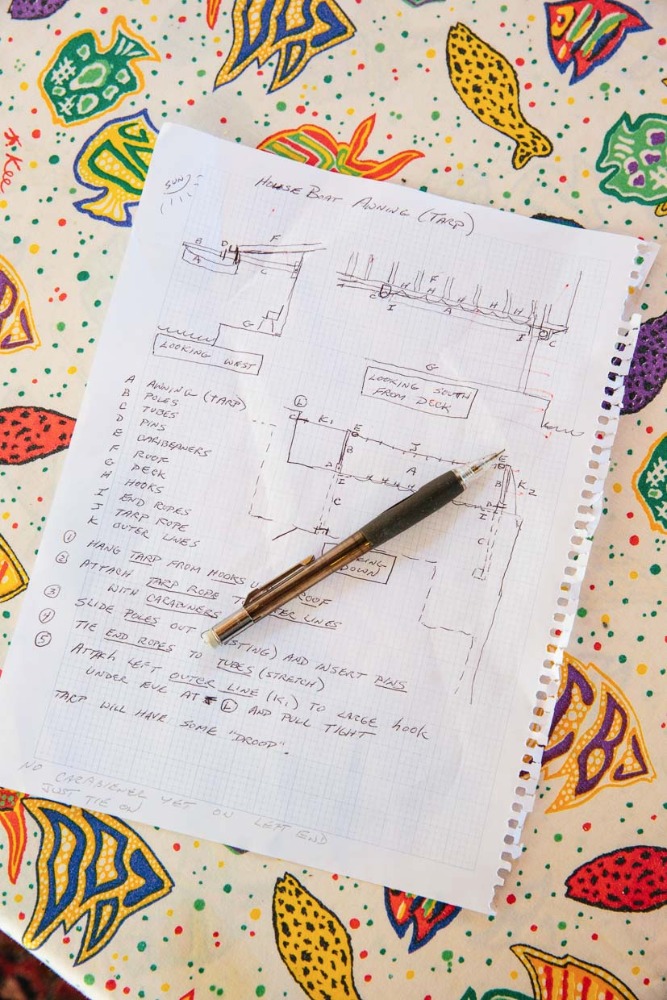 SUN
HOUSE BOAT AWNING (TARP)
B D F
A C
G
LOOKING WEST
F
H H H H H H
C I A I C
G
LOOKING SOUTH
FROM DECK
A AWNING (TARP)
B POLES
C TUBES
D PINS
E CARIBEANERS
F ROOF
G DECK
H HOOKS
I END ROPES
J TARP ROPE
K OUTER LINES
L K1 E J E
B A B K2
D I I
C C
DOWN
1 HANG TARP FROM HOOKS ROOF
2 ATTACH TARP ROPE LINES
WITH CARABINERS
3 SLIDE POLES OUT AND INSERT PINS
4 TIE END ROPES TO TUBES (STRETCH)
5 ATTACH LEFT OUTER LINE (K1) TO LARGE HOOK
UNDER AT L AND PULL TIGHT
TARP WILL HAVE SOME "DROOP".
NO CARABIENER YET ON LEFT END
JUST TIE ON
Kee